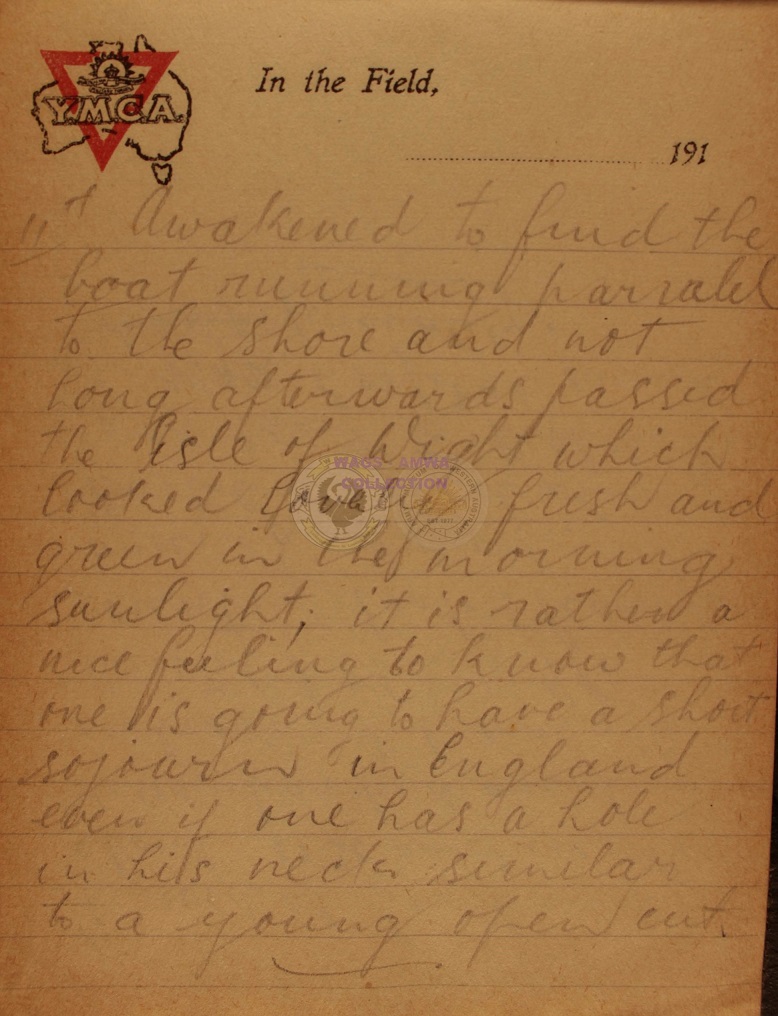 Y.M.C.A.
In the Field,
191
11th Awakened to find the
boat running parralel
to the shore and not
long afterwards passed
the Isle of Wight which
looked lovely fresh and
green in the morning
sunlight; it is rather a
nice feeling to know that
one is going to have a short
sojourn in England
even if one has a hole
in his neck similar
to a young open cut.
WAGS AMWA
COLLECTION